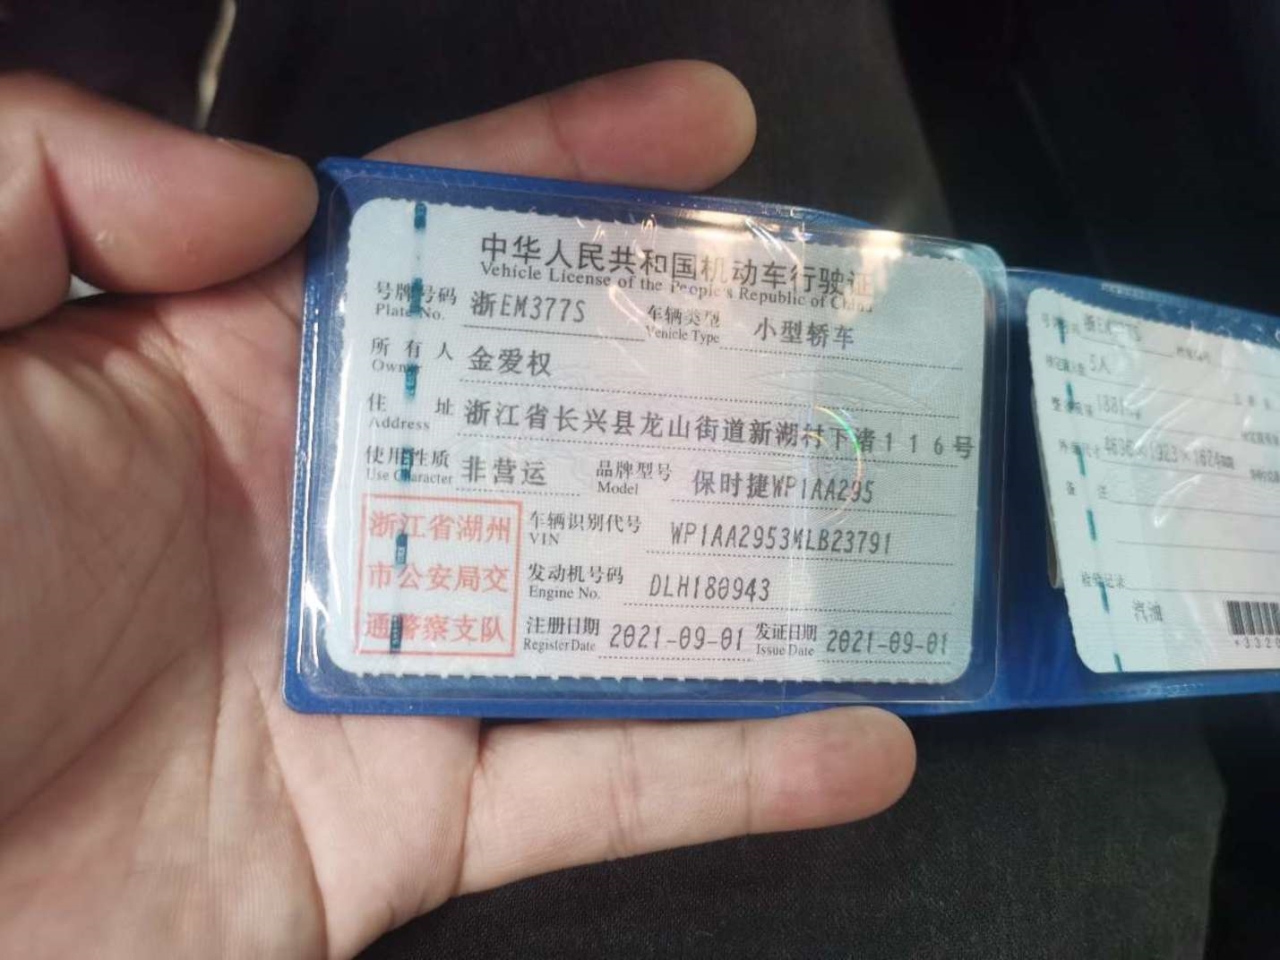 中华人民共和国机动车行驶证
Vehicle License of the People's Republic of China
号牌号码 浙EM377S 车辆类型 小型轿车
Plate No. Vehicle Type
所有人 金爱权
Owner
住址 浙江省长兴县龙山街道新湖村下渚116号
Address
使用性质 非营运 品牌型号 保时捷WP1AA295
Use Character Model
浙江省湖州
市公安局交
通警察支队
车辆识别代号 WP1AA2953MLB23791
VIN
发动机号码 DLH180943
Engine No.
注册日期 2021-09-01 发证日期 2021-09-01
Register Date Issue Date
5人
备注
检验记录
汽油